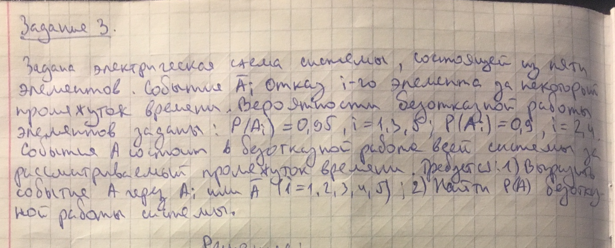 Задание 3.
Задана электрическая схема системы, состоящей из пяти
элементов. Событие A̅i отказ i-го элемента за некоторый
промежуток времени. Вероятности безотказной работы
элементов заданы: P(Ai)=0,95, i=1,3,5; P(Ai)=0,9, i=2,4.
Событие A состоит в безотказной работе всей системы за
рассматриваемый промежуток времени. Требуется: 1) Выразить
событие A через Ai или A̅ (i=1,2,3,4,5); 2) Найти P(A) безотказ
ной работы системы.